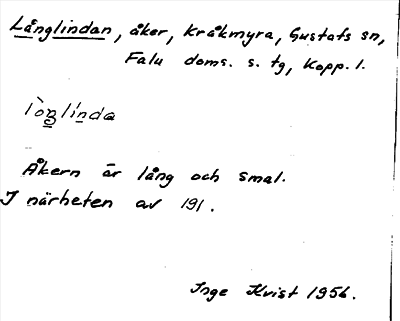 Långlindan, åker, Kråkmyra, Gustafs sn,
Falu doms. s. tg, Kopp. l.
Åkern är lång och smal.
I närheten av 191.
Inge Kvist 1956.